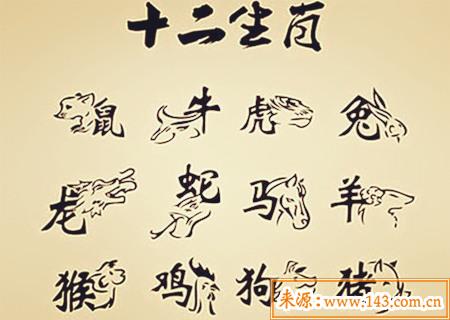 十二生肖
鼠 牛 虎 兔
龙 蛇 马 羊
猴 鸡 狗 猪
来源:www.143.com.cn